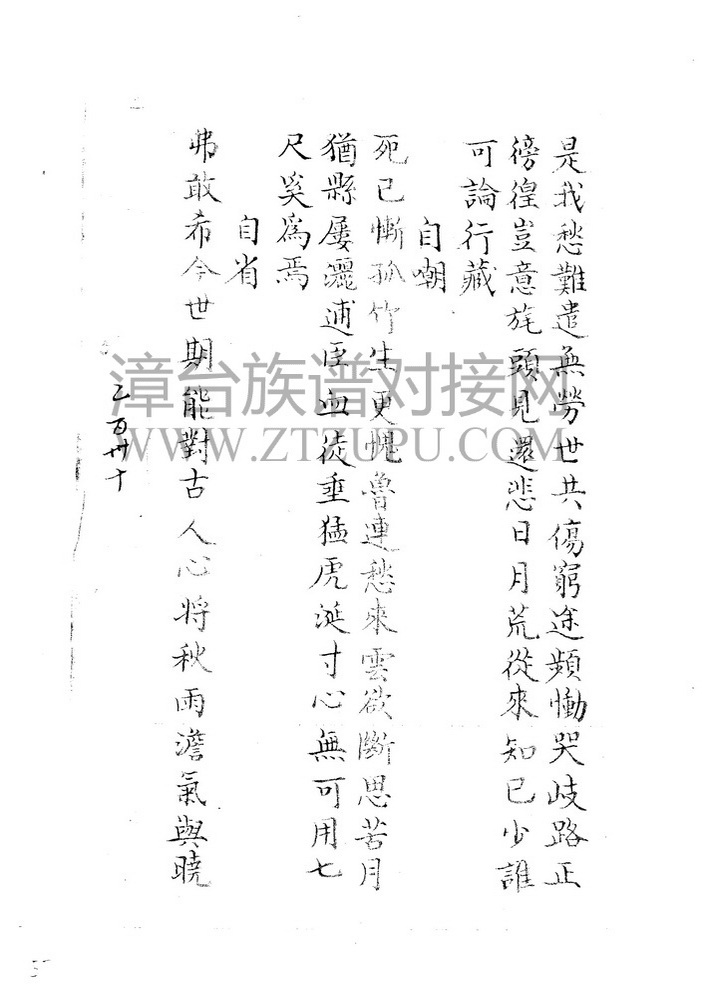 是我愁難遣無勞世共傷窮途頻慟哭歧路正
徬徨豈意旄頭見還悲日月荒從來知己少誰
可論行藏
自嘲
死已慚孤竹生更愧魯連愁來雲欲斷思苦月
猶縣屢灑逋臣血徒垂猛虎涎寸心無可用七
尺奚爲焉
自省
弗敢希今世期能對古人心將秋雨澹氣與曉
乙百卅十
漳台族谱对接网
WWW.ZTZUPU.COM